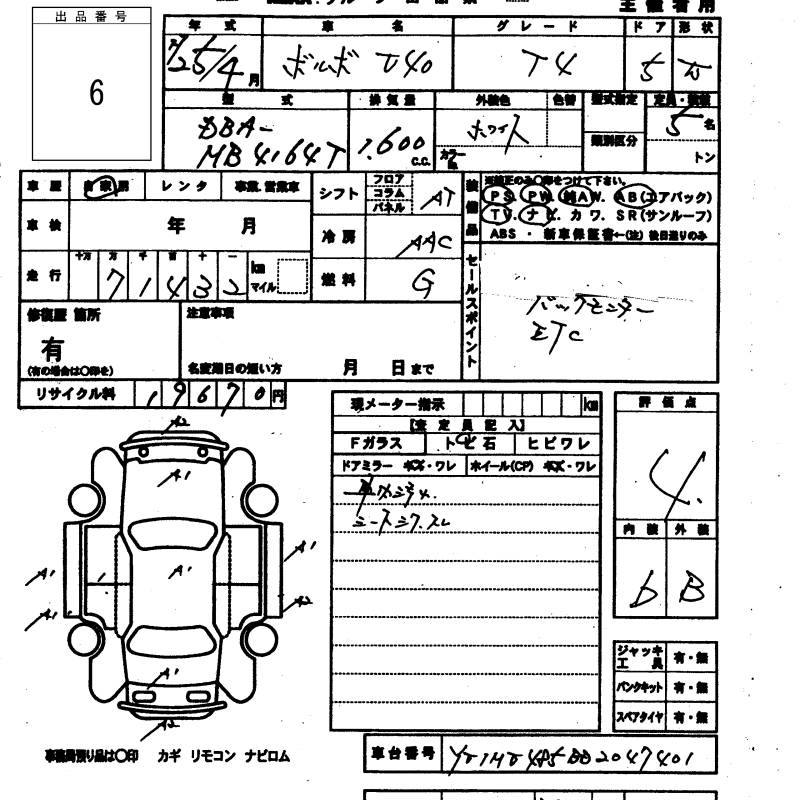 出品番号
6
主催者用
年式 車名 グレード ドア 形状
25/4月 ボルボ V40 T4 5
型式 排気量 外装色 色替 型式指定 定員・積載
DBA- 1,600 c.c. ホワイト カラーNo. 類別区分 5名
MB4164T トン
車歴 自家用 レンタ 事業.営業車 シフト フロア コラム パネル AT
車検 年 月 冷房 AAC
走行 十万 万 千 百 十 一 71432 km マイル 燃料 G
装備品 ※純正のみ○印をつけて下さい。
PS. PW. MAW. AB(エアバック)
TV. ナビ. カワ. SR(サンルーフ)
ABS・新車保証書←(注)後日送りのみ
セールスポイント
バックモニター
ETC
修復歴 箇所 注意事項
有
(有の場合は○印を) 名変期日の短い方 月 日まで
リサイクル料 19670円
現メーター指示 km
【査定員記入】
Fガラス トビ石 ヒビワレ
ドアミラー キズ・ワレ ホイール(CP) キズ・ワレ
シートシワ.スレ
評価点
4.
内装 外装
b B
A2
A1
A1
A1
A1
A1
A2
A1
A2
ジャッキ工具 有・無
パンクキット 有・無
スペアタイヤ 有・無
事務局預り品は○印 カギ リモコン ナビロム
車台番号 YV1MV485BD2047401